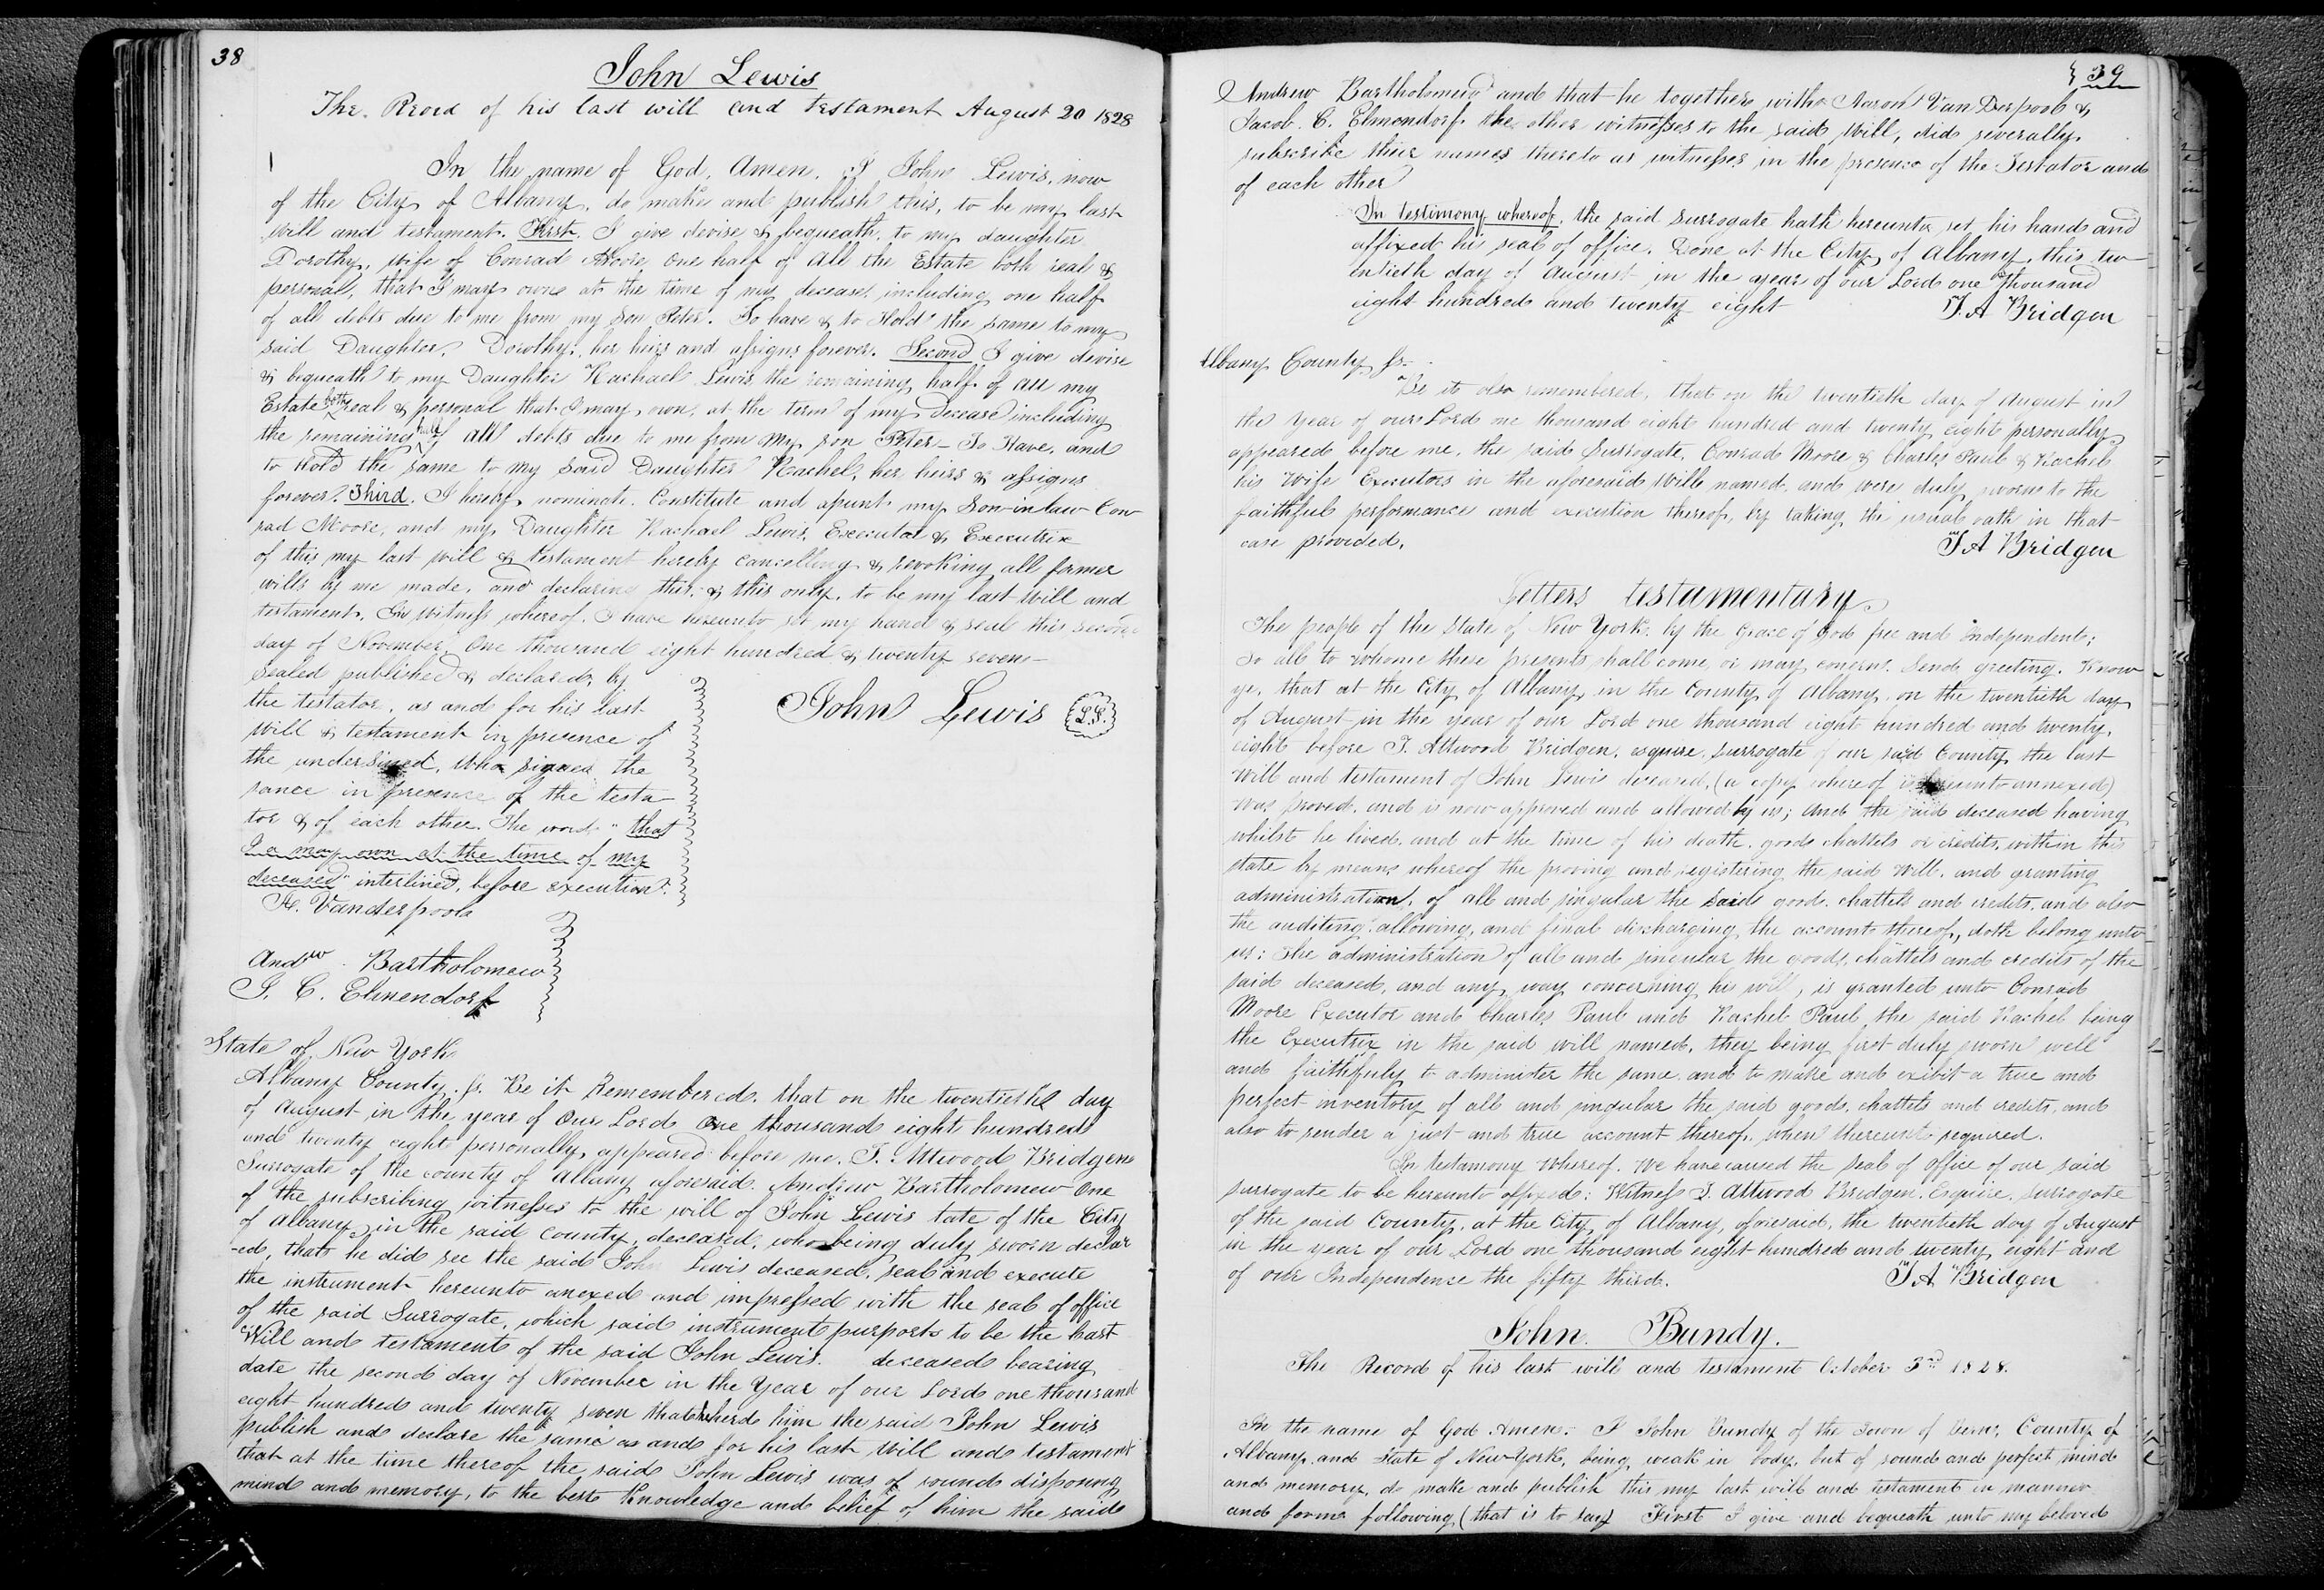 38
John Lewis
The Record of his last will and testament August 20 1828
In the name of God, Amen. I John Lewis, now
of the City of Albany, do make and publish this, to be my last
will and testament. First. I give devise & bequeath to my daughter
Dorothy, wife of Conrad Moore, One half of All the Estate both real &
personal, that I may own at the time of my decease, including one half
of all debts due to me from my Son Peter. To have & to Hold the same to my
said Daughter, Dorothy, her heirs and assigns forever. Second I give devise
& bequeath to my Daughter Rachael Lewis the remaining half of all my
Estate both real & personal that I may own, at the term of my decease including
the remaining half of all debts due to me from my son Peter - To Have, and
to Hold the same to my said Daughter Rachel, her heirs & assigns
forever. Third. I hereby nominate. Constitute and apunt my Son-in-law Con
rad Moore, and my Daughter Rachael Lewis, Executor & Executrix
of this my last will & testament hereby cancelling & revoking all former
wills by me made, and declaring this, & this only, to be my last Will and
testament. In Witness whereof, I have hereunto set my hand & seal this second
day of November, One thousand eight hundred & twenty seven -
Sealed published & declared, by
the testator, as and for his last
Will & testament in presence of
the undersigned, Who signed the
sance in presence of the testa-
tor & of each other. The words "that
I a may own at the time of my
deceased" interlined, before execution.
John Lewis L.S.
A. Vanderpool
Andw. Bartholomew
J. C. Elmendorf
State of New York
Albany County. ss. Be it Remembered, that on the twentieth day
of August in the year of Our Lord One thousand eight hundred
and twenty eight personally appeared before me. T. Attwood Bridgen
Surrogate of the county of Albany aforesaid. Andrew Bartholomew One
of the subscribing witnesses to the will of John Lewis late of the City
of Albany in the said county, deceased, who being duly sworn declar
-ed, that he did see the said John Lewis deceased, seal and execute
the instrument hereunto anexed and impressed with the seal of office
of the said Surrogate, which said instrument purports to be the last
Will and testament of the said John Lewis. deceased bearing
date the second day of November in the Year of our Lord one thousand
eight hundred and twenty seven that he herd him the said John Lewis
publish and declare the same as and for his last Will and testament
that at the time thereof the said John Lewis was of sound disposing
mind and memory, to the best Knowledge and belief of him the said
39
Andrew Bartholomew and that he together with Aaron Van Derpool &
Jacob. C. Elmendorf. the other witnesses to the said Will, did severally
subscribe their names thereto as witnesses in the presence of the Testator and
of each other
In testimony whereof, the said surrogate hath hereunto set his hand and
affixed his seal of office. Done at the City of Albany, this tw-
entieth day of August in the year of our Lord one thousand
eight hundred and twenty eight
T. A Bridgen
Albany County ss.
Be it also remembered, that on the twentieth day of August in
the year of our Lord one thousand eight hundred and twenty eight personally
appeared before me, the said Surrogate, Conrad Moore & Charles Paul & Rachel
his Wife Executors in the aforesaid Will named, and were duly sworn to the
faithful performance and execution thereof, by taking the usual oath in that
case provided.
T A Bridgen
Letters testamentary.
The people of the State of New York, by the Grace of God free and independent;
To all to whome these presents shall come, or may concern. Send greeting. Know
ye, that at the City of Albany, in the county of Albany, on the twentieth day
of August in the year of our Lord one thousand eight hundred and twenty,
eight before T. Attwood Bridgen, esquire, surrogate of our said County the last
Will and testament of John Lewis deceased, (a copy whereof is hereunto annexed)
was proved, and is now approved and allowed by us; And the said deceased having
whilst he lived, and at the time of his death, goods chattels or credits, within this
state by means whereof the proving and registering the said Will. and granting
administration, of all and singular the said goods. chattels and credits, and also
the auditing, allowing, and final discharging the account thereof, doth belong unto
us; The administration of all and singular the goods, chattels and credits of the
said deceased, and any way concerning his will, is granted unto Conrad
Moore Executor and Charles Paul and Rachel Paul the said Rachel being
the Executrix in the said will named, they being first duly sworn well
and faithfuly to administer the same, and to make and exibit a true and
perfect inventory of all and singular the said goods, chattels and credits, and
also to render a just and true account thereof, when thereunto required.
In testamony whereof. We have caused the seal of office of our said
surrogate to be hereunto affixed: Witness T. Attwood Bridgen. Esquire, surrogate
of the said County, at the City of Albany, aforesaid, the twentieth day of August
in the year of our Lord one thousand eight hundred and twenty eight and
of our Independence the fifty third.
T A Bridgen
John. Bundy.
The Record of his last will and testament October 3rd 1828.
In the name of God Amen. I John Bundy of the Town of Bern, County of
Albany, and State of New York, being weak in body, but of sound and perfect mind
and memory, do make and publish this my last will and testament in manner
and form following (that is to say) First I give and bequeath unto my beloved